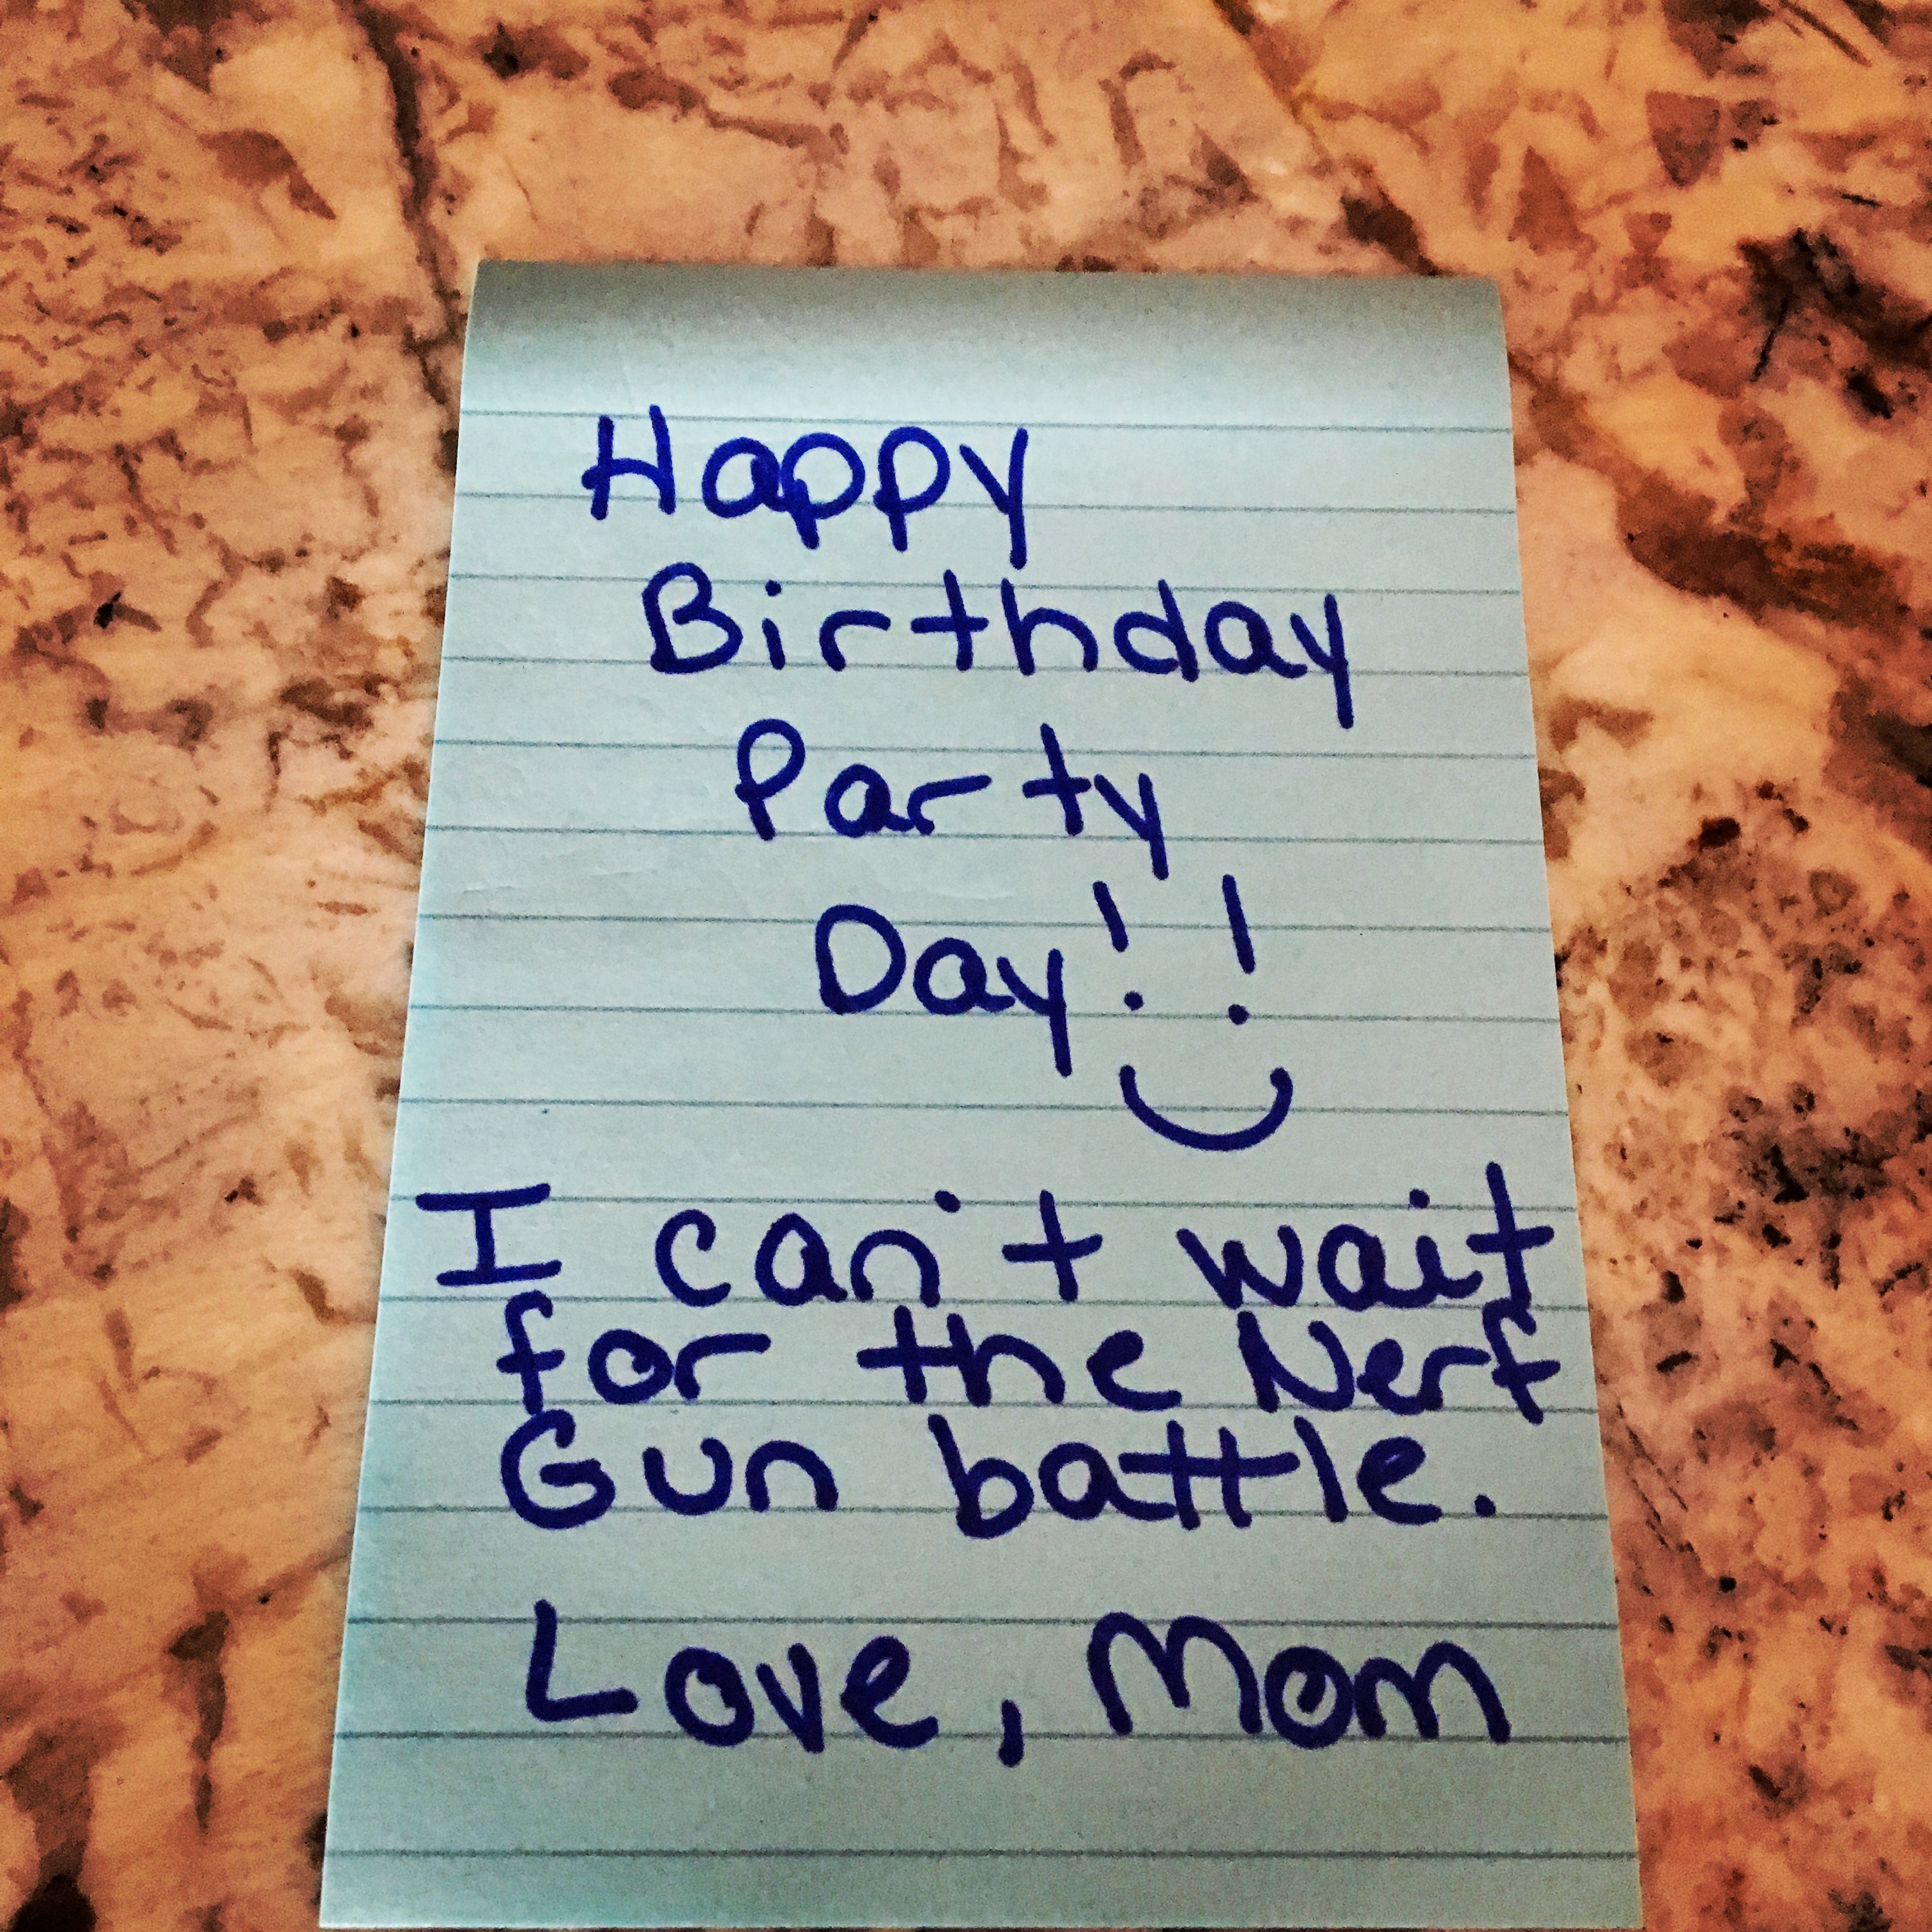 Happy
Birthday
Party
Day!!
I can't wait
for the Nerf
Gun battle.
Love, Mom